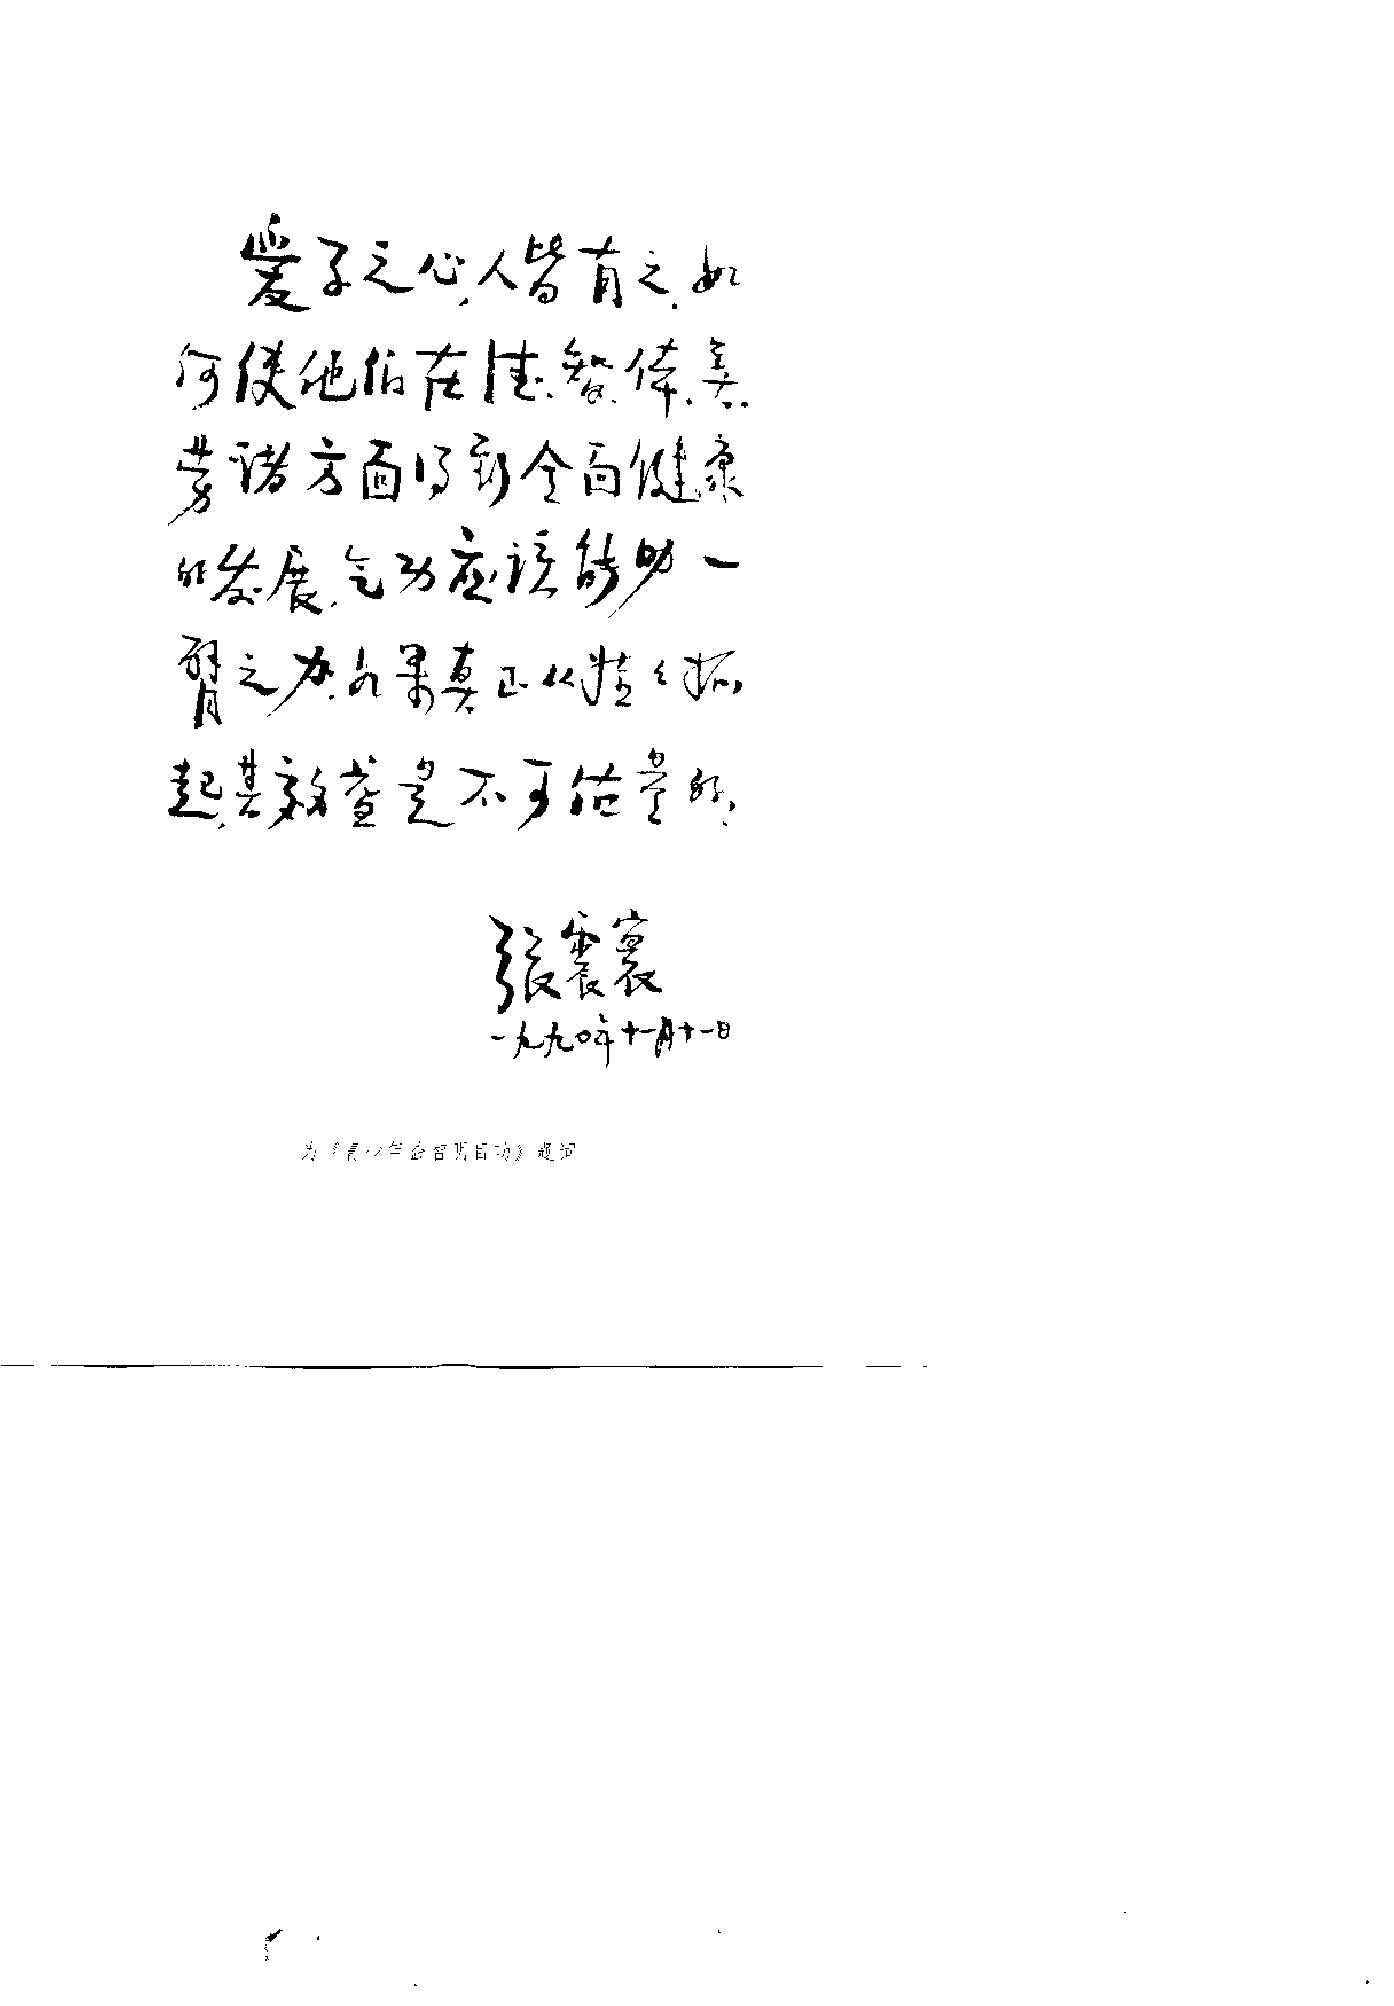 爱子之心,人皆有之.如
何使他们在德、智、体、美、
劳诸方面得到全面健康
的发展,气功应该能助一
臂之力.如果真正从娃娃抓
起,其效益是不可估量的.
張震寰
一九九〇年十一月十一日
为《青少年益智明目功》题词